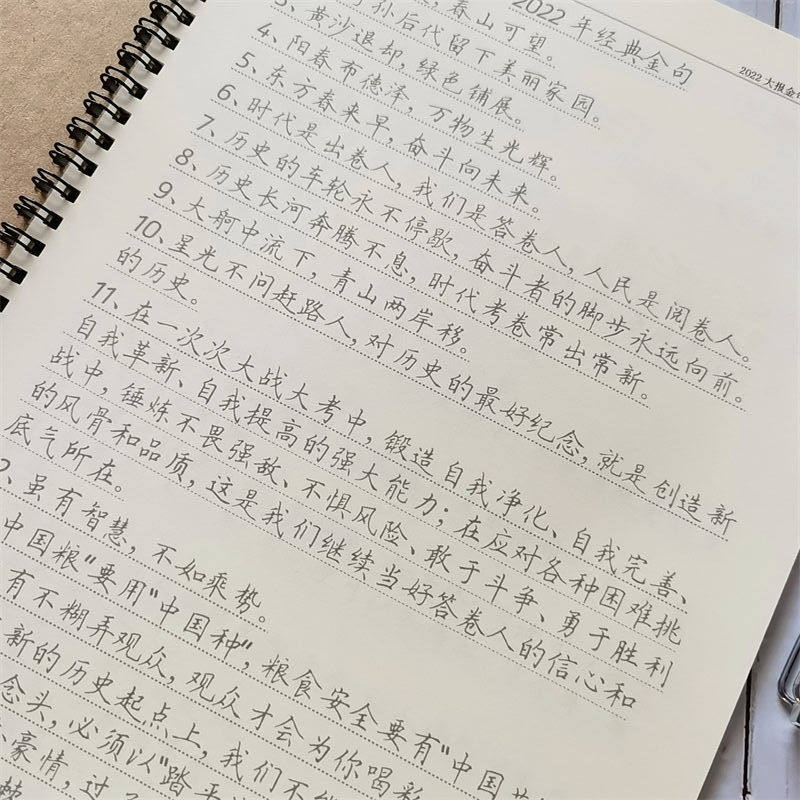 2022大报金
2022年经典金句
春山可望。
子孙后代留下美丽家园。
3、黄沙退却,绿色铺展。
4、阳春布德泽,万物生光辉。
5、东方春来早,奋斗向未来。
6、时代是出卷人,我们是答卷人,人民是阅卷人。
7、历史的车轮永不停歇,奋斗者的脚步永远向前。
8、历史长河奔腾不息,时代考卷常出常新。
9、大舸中流下,青山两岸移。
10、星光不问赶路人,对历史的最好纪念,就是创造新
的历史。
11、在一次次大战大考中,锻造自我净化、自我完善、
自我革新、自我提高的强大能力;在应对各种困难挑
战中,锤炼不畏强敌、不惧风险、敢于斗争、勇于胜利
的风骨和品质,这是我们继续当好答卷人的信心和
底气所在。
2、虽有智慧,不如乘势。
中国粮"要用"中国种",粮食安全要有"中国
有不糊弄观众,观众才会为你喝彩
新的历史起点上,我们不
念头,必须以"踏平
豪情,过